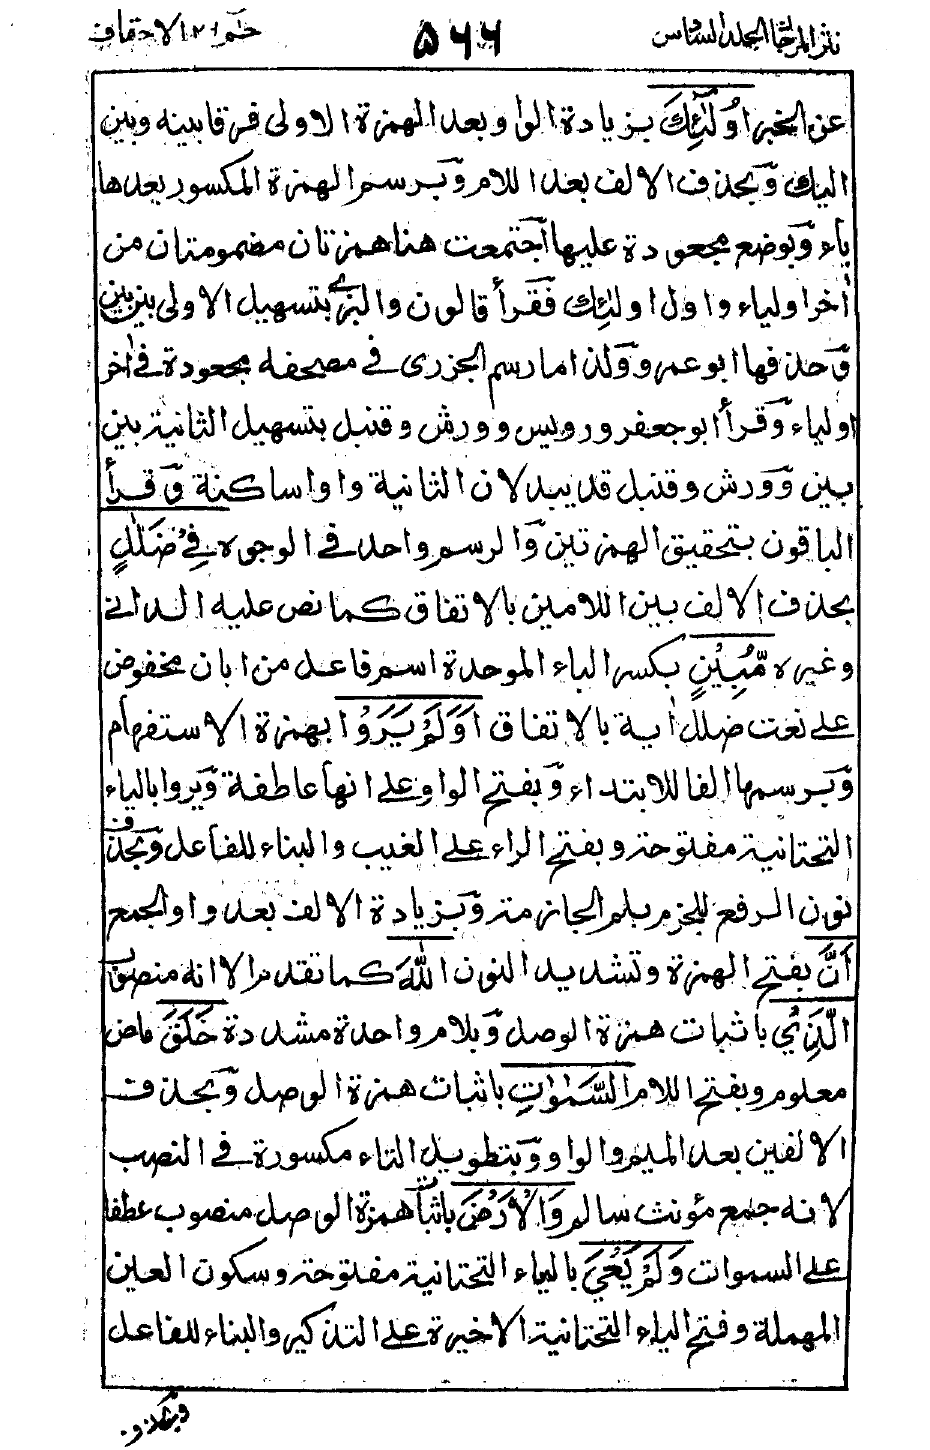 نثر المرجان المجلد السادس ۵۶۶ حٰم ۲۶ الاحقاف
عن الخبر اُولٰٓئِكَ بزيادة الواو بعد الهمزة الاولى فرقا بينه وبين
اليك وَبحذف الالف بعد اللام وَبرسم الهمزة المكسور بعدها
ياء وَبوضع مجعودة عليها اجتمعت هنا همزتان مضمومتان من
أخر اولياء واول اولٰئك فقرأ قالون والبزى بتسهيل الاولى بين بين
وَحذفها ابو عمرو ولذا ما رسم الجزرى فى مصحفه مجعودة فى اٰخر
اولياء وَقرأ ابو جعفر ورويس وورش وقنبل بتسهيل الثانية بين
بين وَورش وقنبل قد يبدلان الثانية واوا ساكنة وَقرأ
الباقون بتحقيق الهمزتين وَالرسم واحد فى الوجوه فِىْ ضَلٰلٍ
بحذف الالف بين اللامين بالاتفاق كما نص عليه الدانى
وغيره مُّبِيْنٍ بكسر الباء الموحدة اسم فاعل من ابان مخفوض
على نعت ضلل اٰية بالاتفاق اَوَلَمْ يَرَوْا بهمزة الاستفهام
وَبرسمها الفا للابتداء وَبفتح الواو على انها عاطفة وَيروا بالياء
التحتانية مفتوحة وبفتح الراء على الغيب والبناء للفاعل وَبحذف
نون الرفع للجزم بلم الجازمة وَبزيادة الالف بعد واو الجمع
اَنَّ بفتح الهمزة وتشديد النون اللّٰهَ كما تقدم الا انه منصوب
الَّذِىْ باثبات همزة الوصل وَبلام واحدة مشددة خَلَقَ ماض
معلوم وبفتح اللام السَّمٰوٰتِ باثبات همزة الوصل وَبحذف
الالفين بعد الميم والواو وَبتطويل التاء مكسورة فى النصب
لانه جمع مؤنث سالم وَالْاَرْضَ باثبات همزة الوصل منصوب عطفا
على السموات وَلَمْ يَعْىَ بالياء التحتانية مفتوحة وسكون العين
المهملة وفتح الياء التحتانية الاخيرة على التذكير والبناء للفاعل